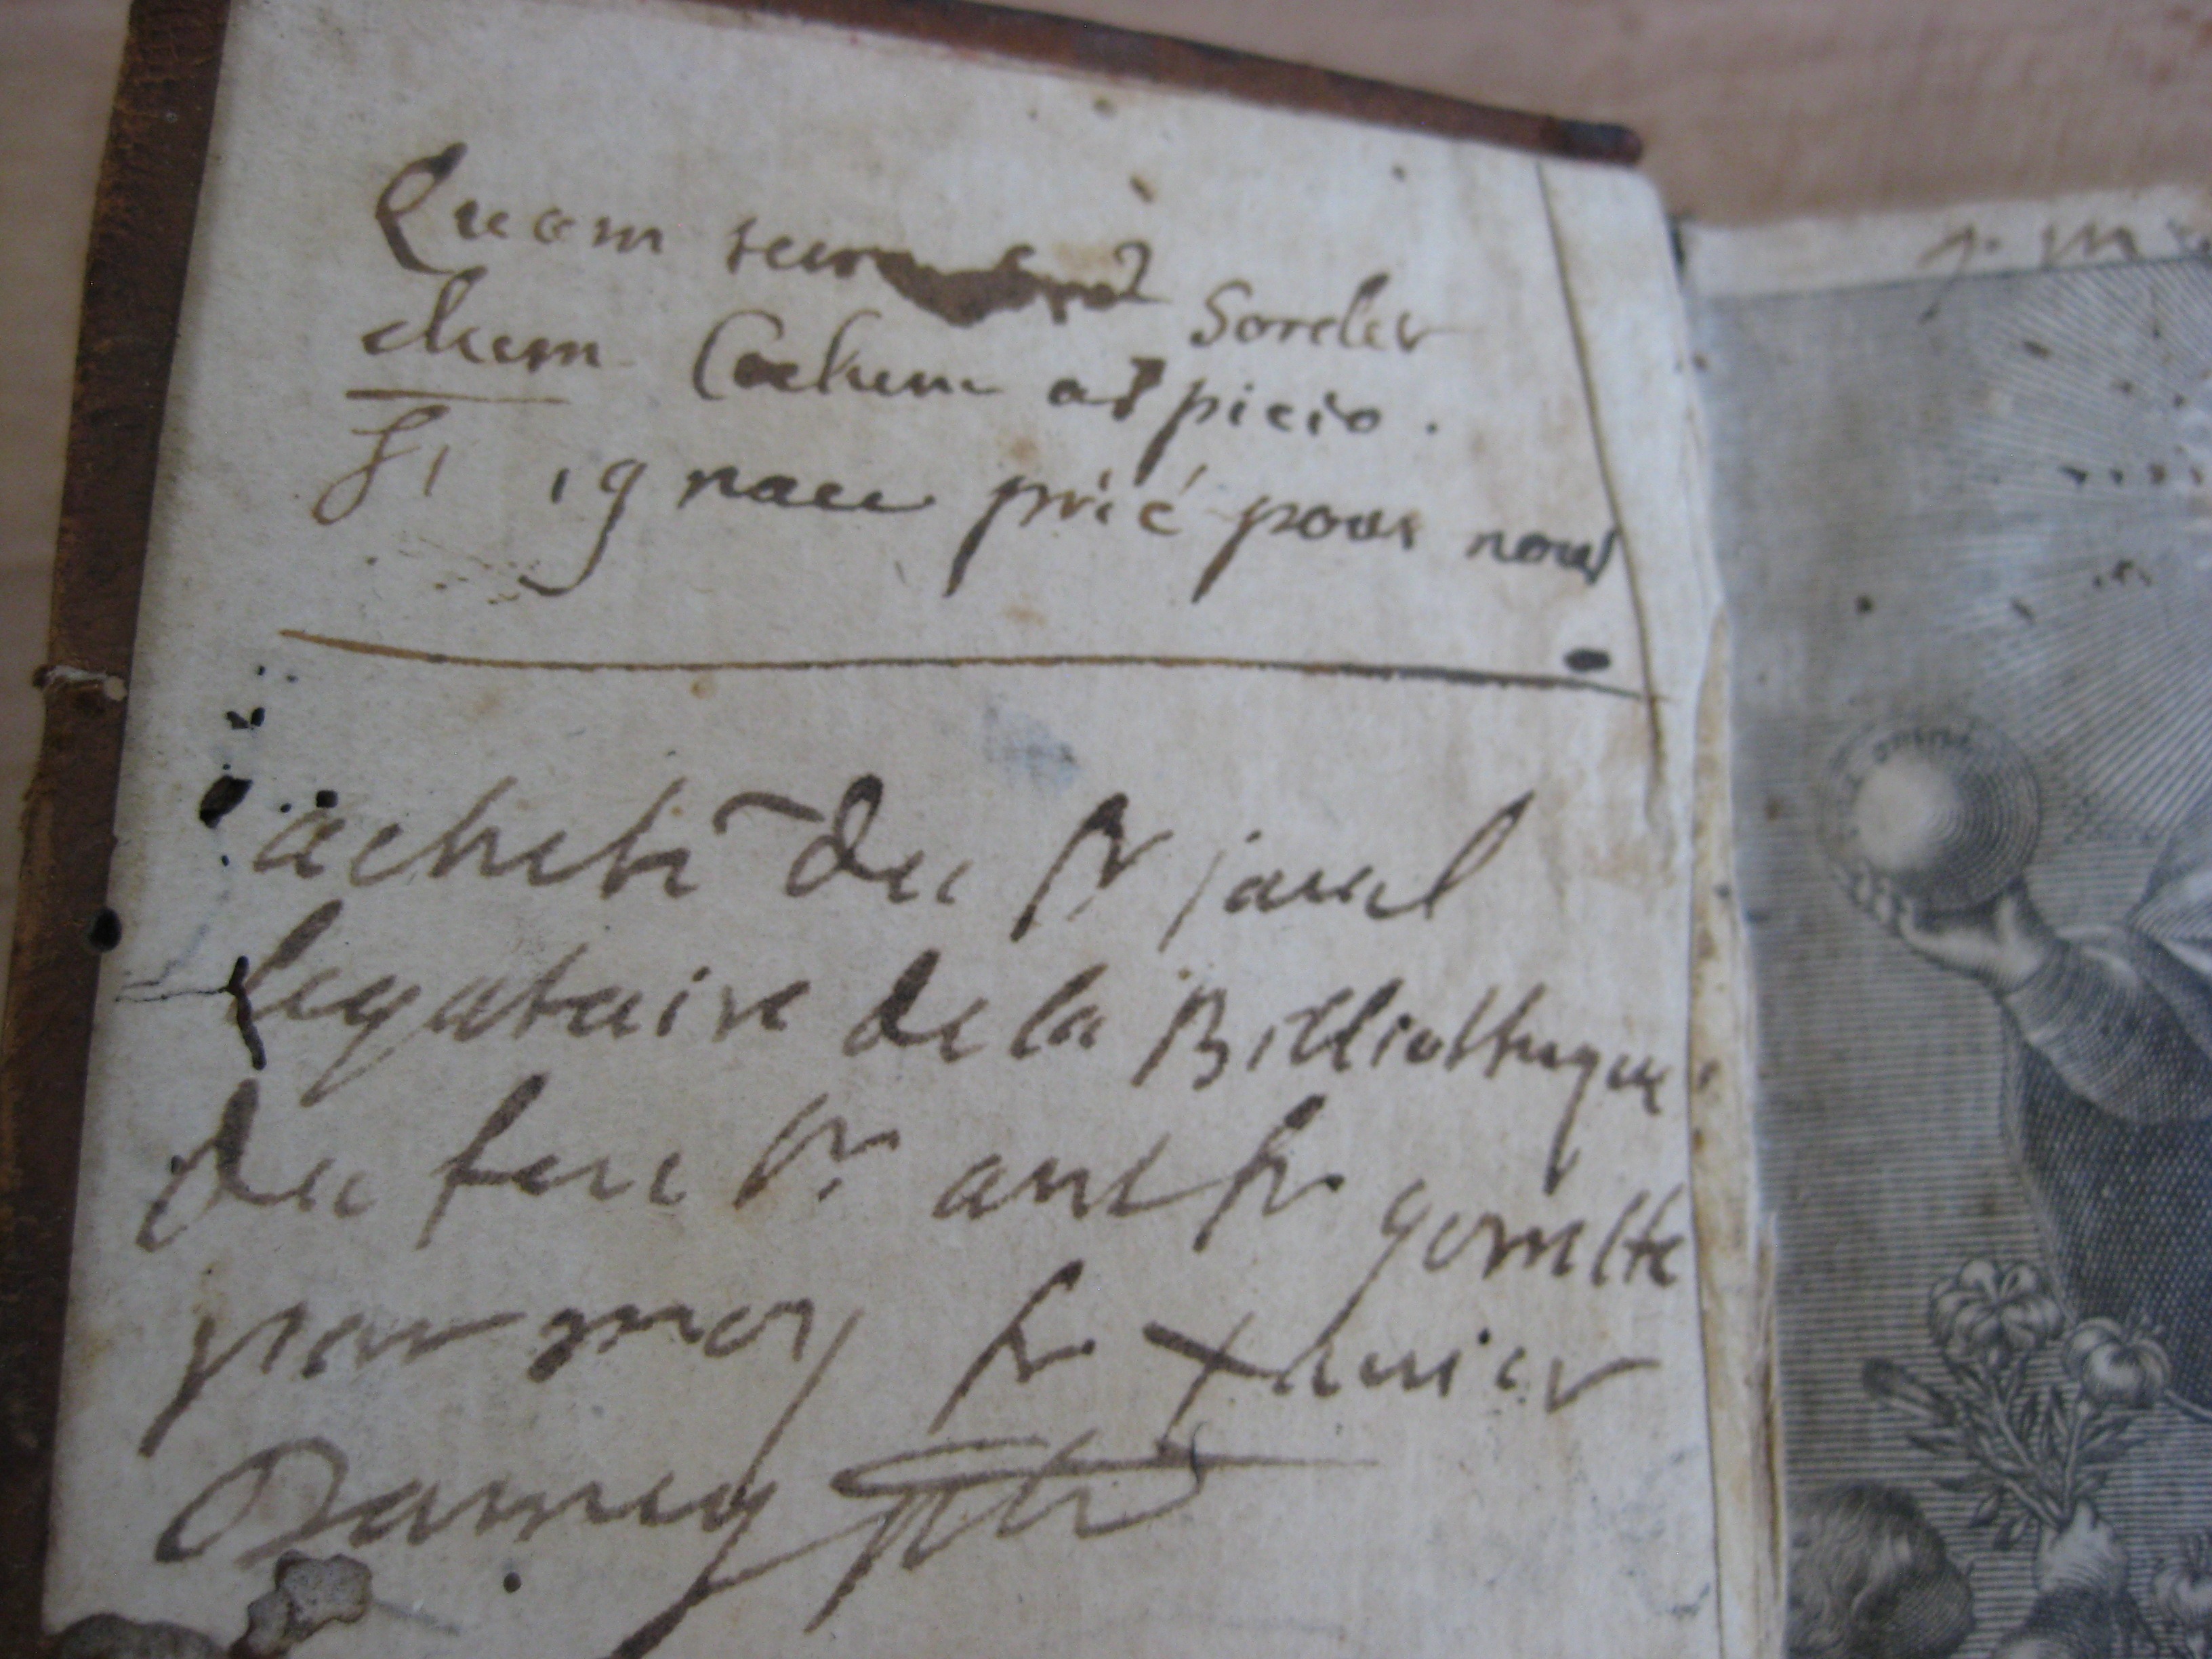 Quam terra Sordet
dum Coelum aspicio.
St ignace prié pour nous
acheté du Sr javel
legataire de la Bibliotheque
du feu Sr ant fr
par moy fr xavier
Damey